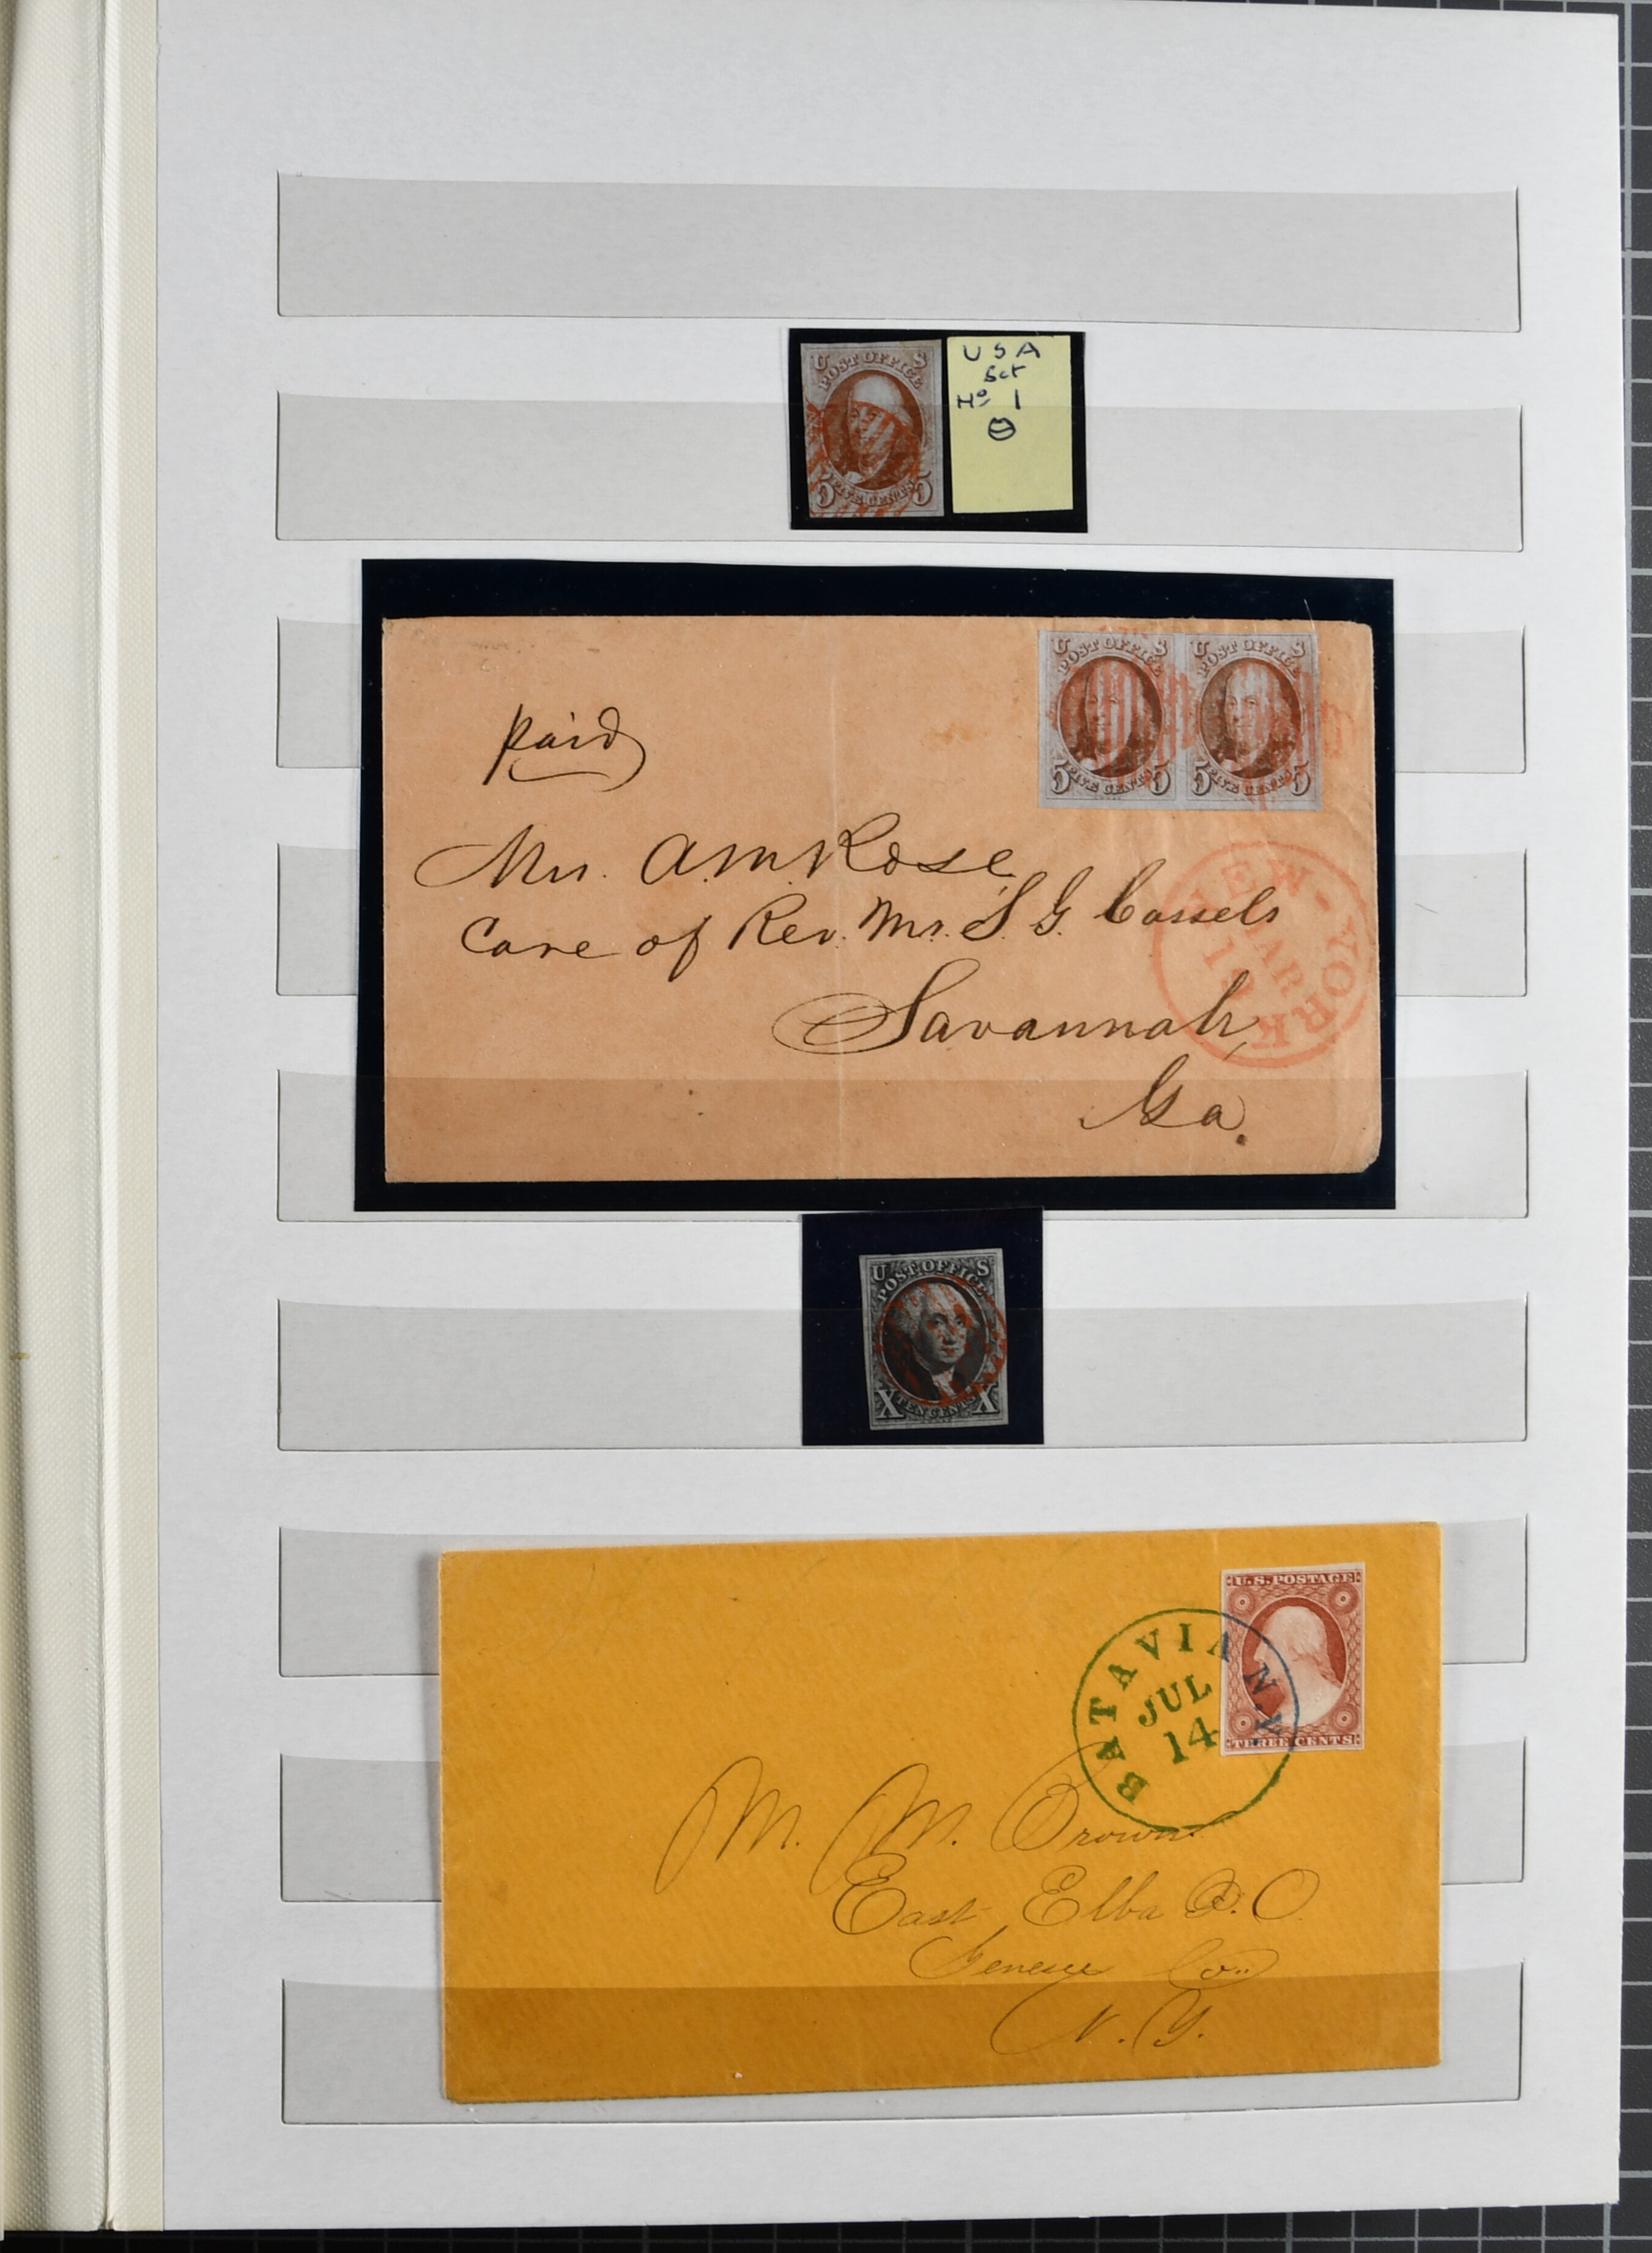 U S
POST OFFICE
5 FIVE CENTS 5
USA
Sct
No 1
paid
U S U S
POST OFFICE POST OFFICE
5 FIVE CENTS 5 5 FIVE CENTS 5
Mr. A.M. Rose
Care of Rev. Mr. S. G. Cassels
Savannah,
Ga.
NEW-YORK
MAR
U S
POST OFFICE
X TEN CENTS X
U.S. POSTAGE
THREE CENTS
BATAVIA N.Y.
JUL
14
M. M. Crown
East Elba P.O.
Genesee Co..
N.Y.